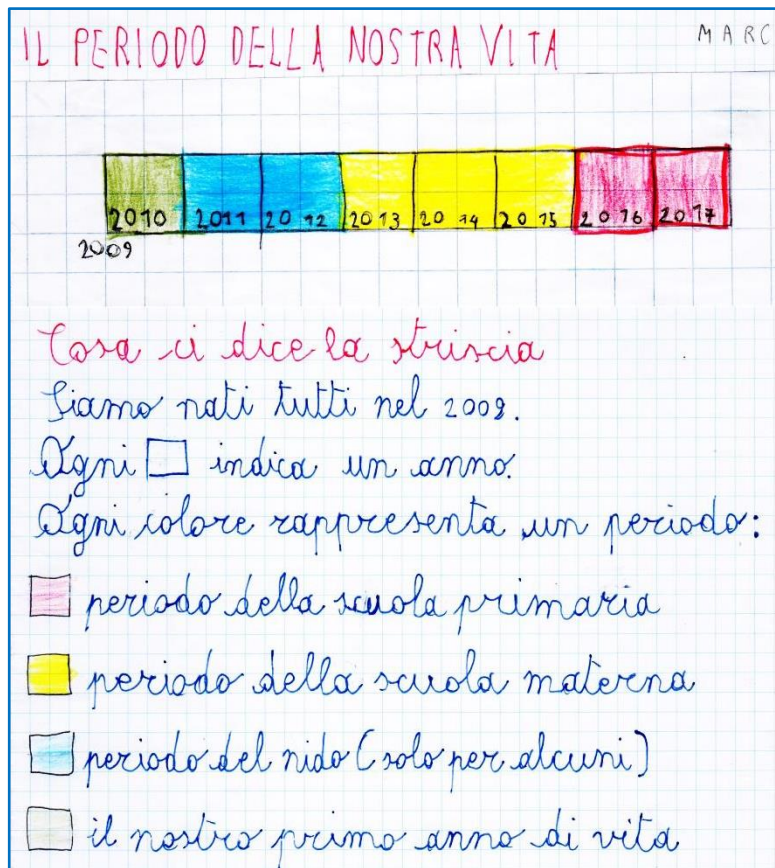 IL PERIODO DELLA NOSTRA VITA
MARC
2010 2011 2012 2013 2014 2015 2016 2017
2009
Cosa ci dice la striscia
Siamo nati tutti nel 2009.
Ogni indica un anno.
Ogni colore rappresenta un periodo:
periodo della scuola primaria
periodo della scuola materna
periodo del nido (solo per alcuni)
il nostro primo anno di vita